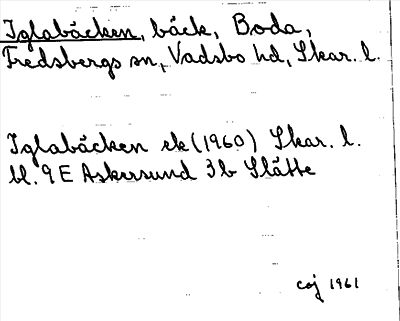 Iglabäcken, bäck, Boda,
Fredsbergs sn, Vadsbo hd, Skar. l.
Iglabäcken ek (1960) Skar. l.
bl. 9E Askersund 3b Slätte
coj 1961